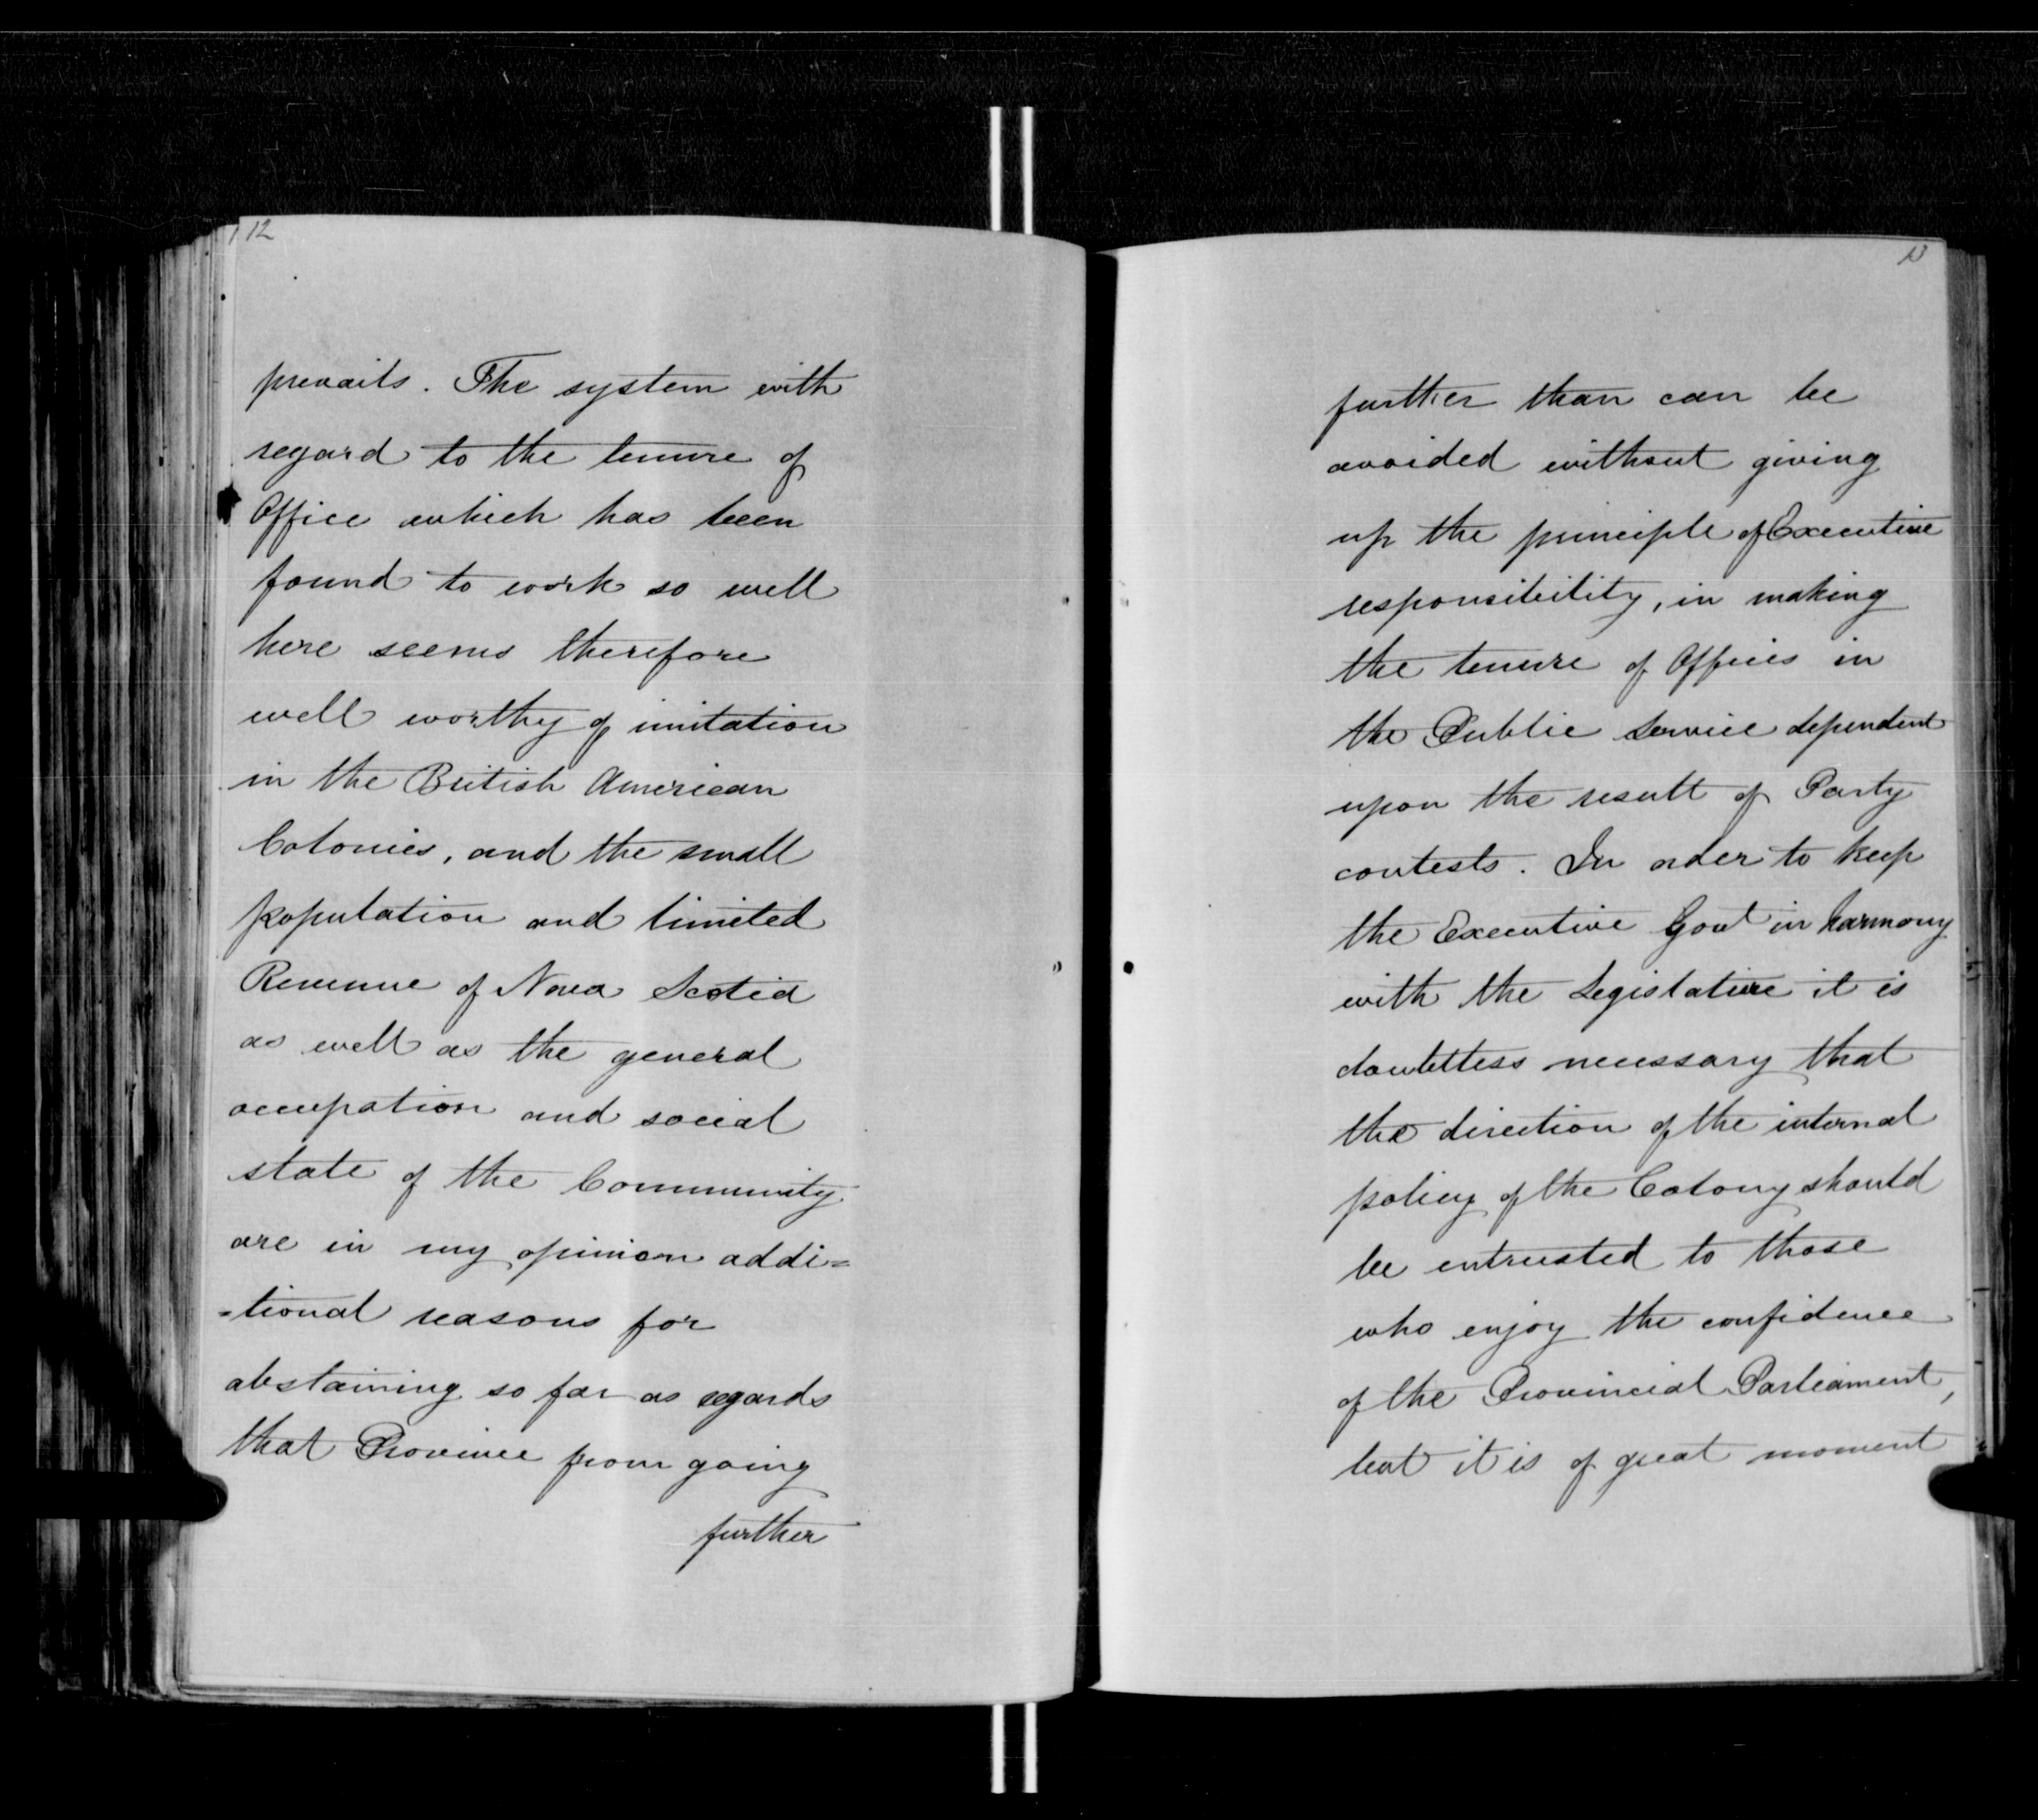 12
prevails. The system with
regard to the tenure of
Office which has been
found to work so well
here seems therefore
well worthy of imitation
in the British American
Colonies, and the small
population and limited
Revenue of Nova Scotia
as well as the general
occupation and social
state of the Community
are in my opinion addi=
=tional reasons for
abstaining so far as regards
that Province from going
further
13
further than can be
avoided without giving
up the principle of Executive
responsibility, in making
the tenure of Offices in
the Public Service dependent
upon the result of Party
contests. In order to keep
the Executive Govt in harmony
with the Legislature it is
doubtless necessary that
the direction of the internal
policy of the Colony should
be entrusted to those
who enjoy the confidence
of the Provincial Parliament,
but it is of great moment